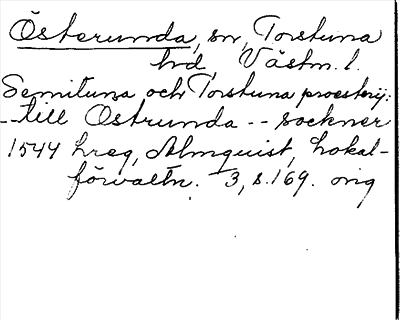 Österunda, sn, Torstuna
hd, Västm. l.
Semituna och Torstuna proesterij:
-- till Ostrunda -- sockner
1544 hreg, Almquist, Lokal-
förvaltn. 3, s. 169. orig